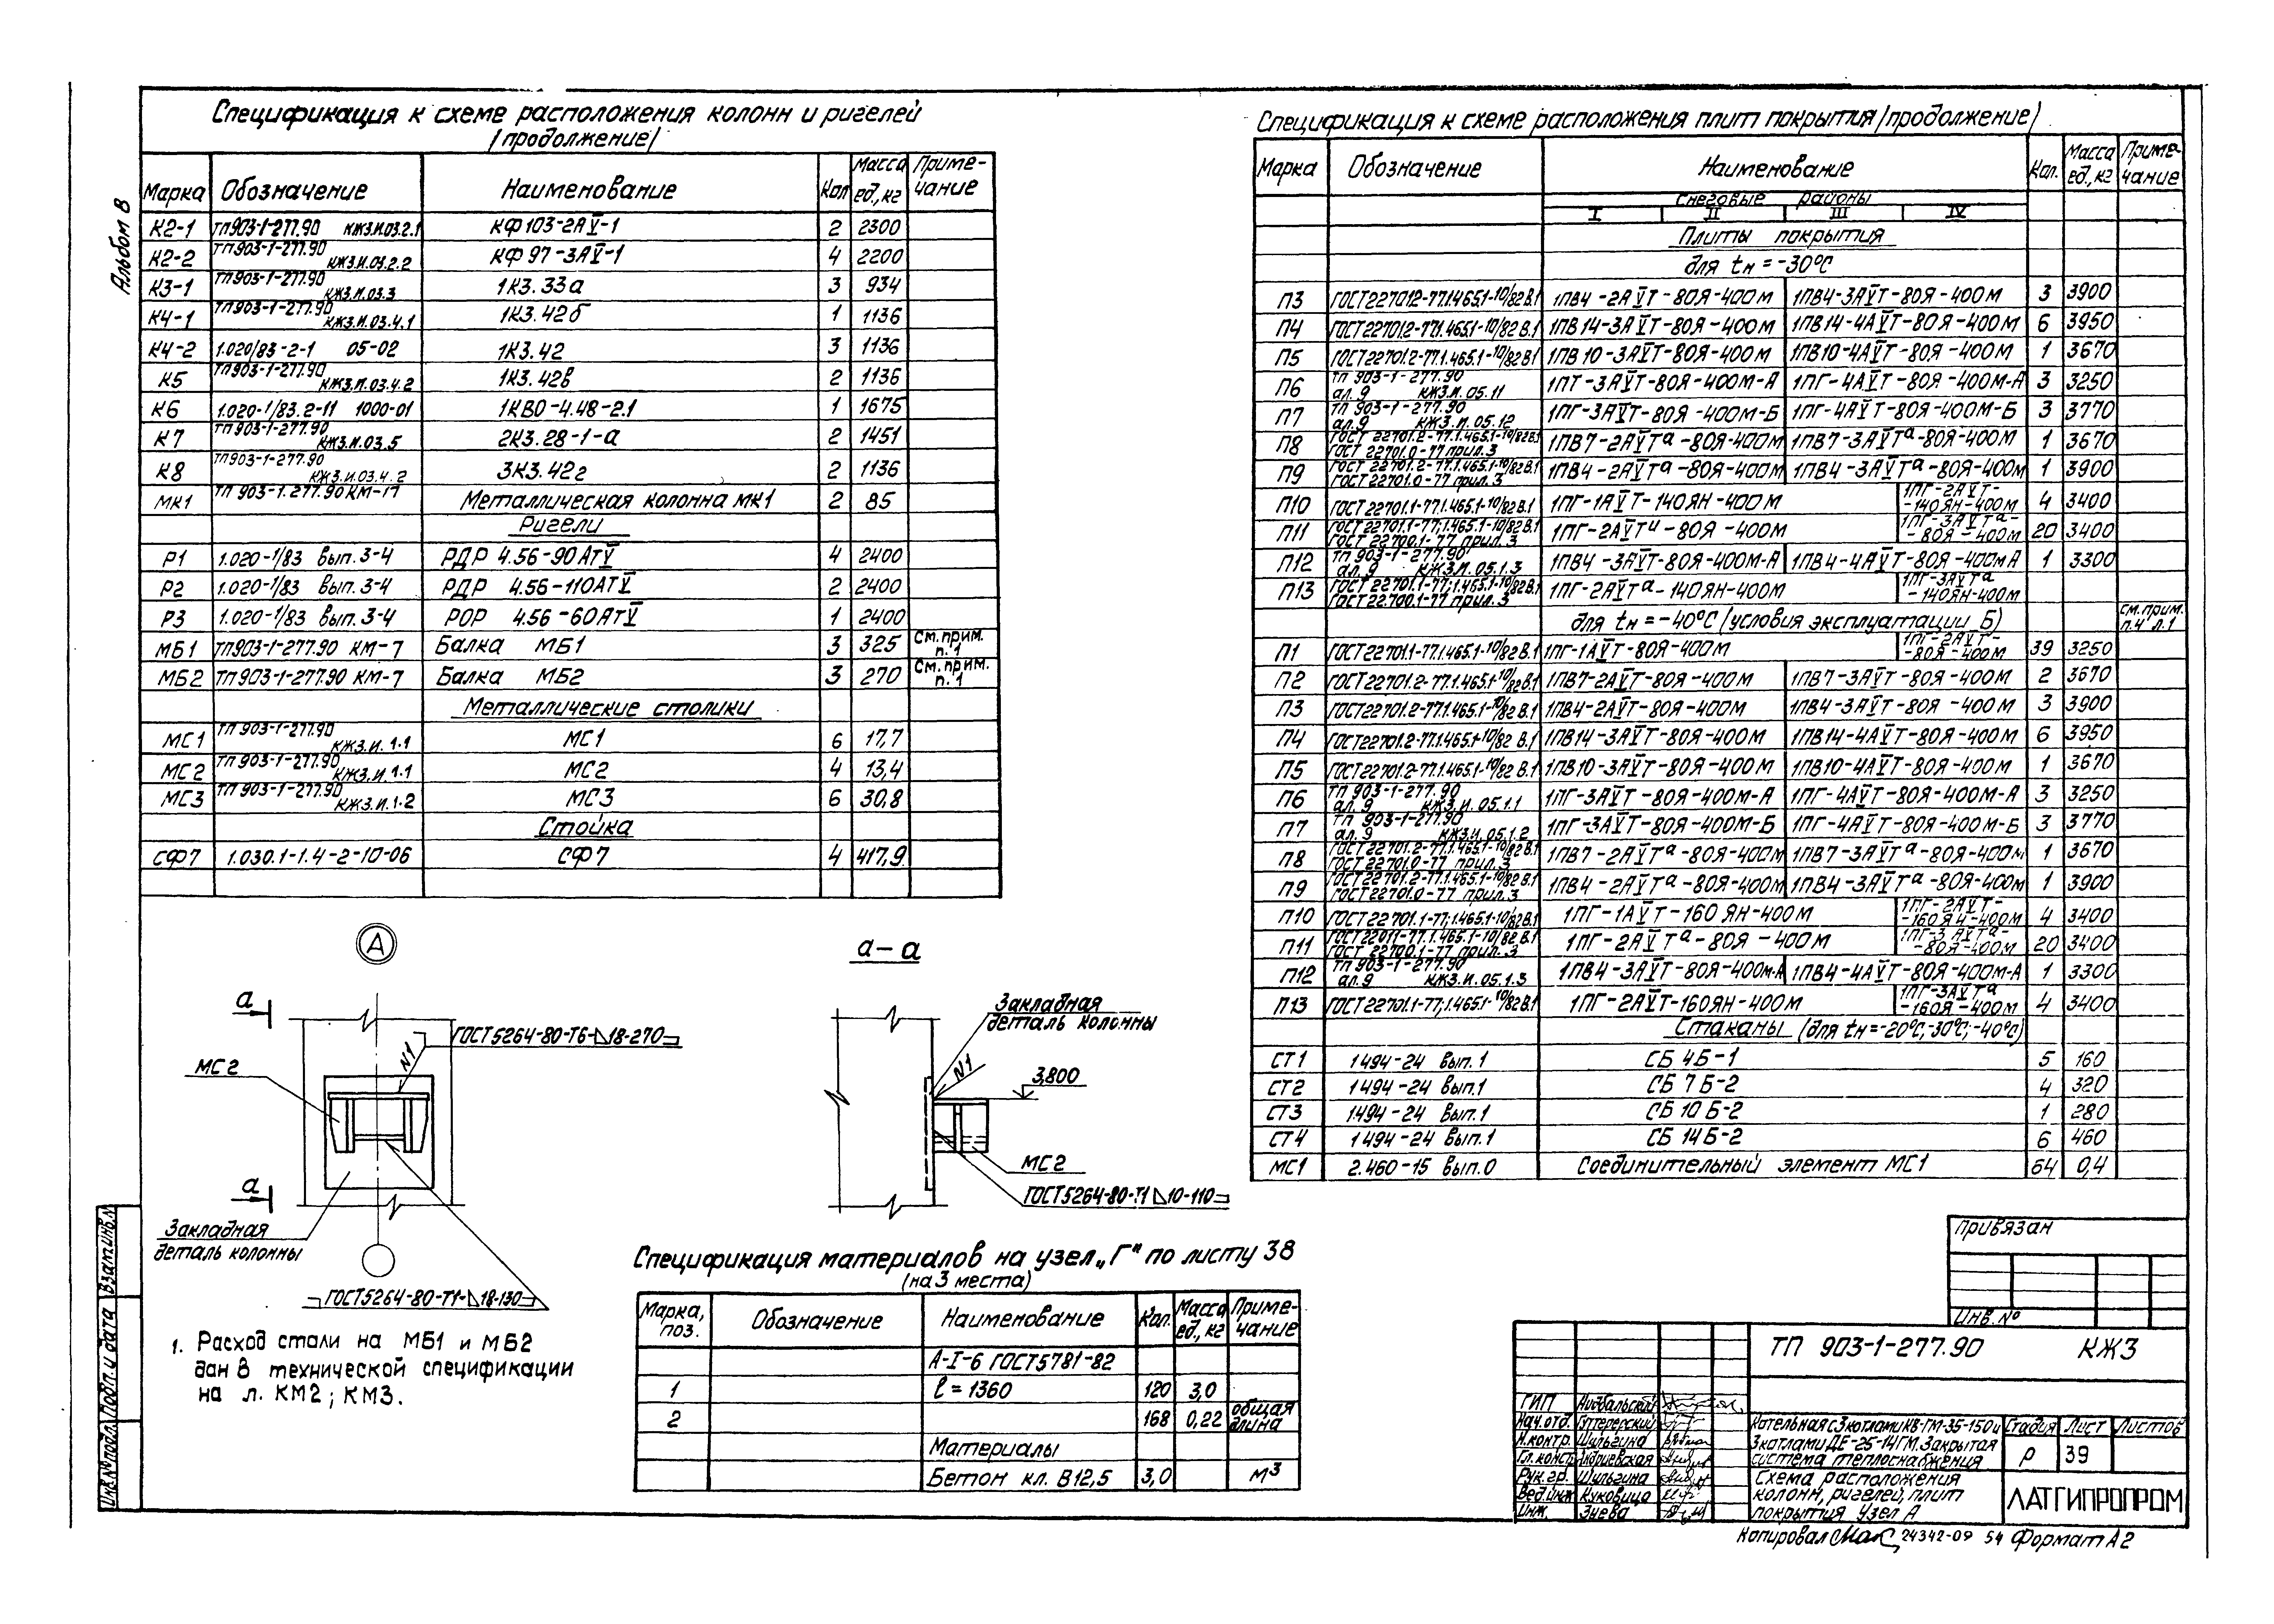 Альбом 8
Спецификация к схеме расположения колонн и ригелей
/продолжение/
Марка Обозначение Наименование Кол Масса ед., кг Приме-чание
К2-1 ТП903-1-277.90 КЖ3.И.03.2.1 КФ103-2АV-1 2 2300
К2-2 ТП903-1-277.90 КЖ3.И.03.2.2 КФ97-3АV-1 4 2200
К3-1 ТП903-1-277.90 КЖ3.И.03.3 1К3.33а 3 934
К4-1 ТП903-1-277.90 КЖ3.И.03.4.1 1К3.42б 1 1136
К4-2 1.020/83-2-1 05-02 1К3.42 3 1136
К5 ТП903-1-277.90 КЖ3.И.03.4.2 1К3.42в 2 1136
К6 1.020-1/83.2-11 1000-01 1КВ0-4.48-2.1 1 1675
К7 ТП903-1-277.90 КЖ3.И.03.5 2К3.28-1-а 2 1451
К8 ТП903-1-277.90 КЖ3.И.03.4.2 3К3.42г 2 1136
МК1 ТП 903-1.277.90 КМ-17 Металлическая колонна МК1 2 85
Ригели
Р1 1.020-1/83 вып. 3-4 РДР 4.56-90АтV 4 2400
Р2 1.020-1/83 вып. 3-4 РДР 4.56-110АТV 2 2400
Р3 1.020-1/83 вып. 3-4 РОР 4.56-60АтV 1 2400
МБ1 ТП903-1-277.90 КМ-7 Балка МБ1 3 325 См. прим. п. 1
МБ2 ТП903-1-277.90 КМ-7 Балка МБ2 3 270 См. прим. п. 1
Металлические столики
МС1 ТП 903-1-277.90 КЖ3.И.1.1 МС1 6 17,7
МС2 ТП 903-1-277.90 КЖ3.И.1.1 МС2 4 13,4
МС3 ТП 903-1-277.90 КЖ3.И.1.2 МС3 6 30,8
Стойка
СФ7 1.030.1-1.4-2-10-06 СФ7 4 417,9
Спецификация к схеме расположения плит покрытия /продолжение/
Марка Обозначение Наименование Кол. Масса ед., кг Приме-чание
Снеговые районы
I II III IV
Плиты покрытия
для tн = -30°С
П3 ГОСТ22701.2-77.1.465.1-10/82 В.1 1ПВ4-2АVТ-80Я-400м 1ПВ4-3АVТ-80Я-400м 3 3900
П4 ГОСТ22701.2-77.1.465.1-10/82 В.1 1ПВ14-3АVТ-80Я-400м 1ПВ14-4АVТ-80Я-400м 6 3950
П5 ГОСТ22701.2-77.1.465.1-10/82 В.1 1ПВ10-3АVТ-80Я-400м 1ПВ10-4АVТ-80Я-400м 1 3670
П6 ТП 903-1-277.90 ал. 9 КЖ3.И.05.11 1ПТ-3АVТ-80Я-400м-А 1ПГ-4АVТ-80Я-400м-А 3 3250
П7 ТП 903-1-277.90 ал. 9 КЖ3.И.05.12 1ПГ-3АVТ-80Я-400м-Б 1ПГ-4АVТ-80Я-400м-Б 3 3770
П8 ГОСТ 22701.2-77.1.465.1-10/82 В.1 ГОСТ 22701.0-77 прил. 3 1ПВ7-2АVТа-80Я-400м 1ПВ7-3АVТа-80Я-400м 1 3670
П9 ГОСТ 22701.2-77.1.465.1-10/82 В.1 ГОСТ 22701.0-77 прил. 3 1ПВ4-2АVТа-80Я-400м 1ПВ4-3АVТа-80Я-400м 1 3900
П10 ГОСТ22701.1-77.1.465.1-10/82 В.1 1ПГ-1АVТ-140ЯН-400м 1ПГ-2АVТ-140ЯН-400м 4 3400
П11 ГОСТ22701.1-77;1.465.1-10/82 В.1 ГОСТ 22700.1-77 прил. 3 1ПГ-2АVТи-80Я-400м 1ПГ-3АVТа-80Я-400м 20 3400
П12 ТП 903-1-277.90 ал. 9 КЖ3.И.05.1.3 1ПВ4-3АVТ-80Я-400м-А 1ПВ4-4АVТ-80Я-400мА 1 3300
П13 ГОСТ 22701.1-77;1.465.1-10/82 В.1 ГОСТ 22.700.1-77 прил. 3 1ПГ-2АVТа-140ЯН-400м 1ПГ-3АVТа-140ЯН-400м
для tн = -40°С (условия эксплуатации Б) см. прим. п. 4 л. 1
П1 ГОСТ22701.1-77.1.465.1-10/82 В.1 1ПГ-1АVТ-80Я-400м 1ПГ-2АVТ-80Я-400м 39 3250
П2 ГОСТ22701.2-77.1.465.1-10/82 В.1 1ПВ7-2АVТ-80Я-400м 1ПВ7-3АVТ-80Я-400м 2 3670
П3 ГОСТ22701.2-77.1.465.1-10/82 В.1 1ПВ4-2АVТ-80Я-400м 1ПВ4-3АVТ-80Я-400м 3 3900
П4 ГОСТ22701.2-77.1.465.1-10/82 В.1 1ПВ14-3АVТ-80Я-400м 1ПВ14-4АVТ-80Я-400м 6 3950
П5 ГОСТ22701.2-77.1.465.1-10/82 В.1 1ПВ10-3АVТ-80Я-400м 1ПВ10-4АVТ-80Я-400м 1 3670
П6 ТП 903-1-277.90 ал. 9 КЖ3.И.05.1.1 1ПГ-3АVТ-80Я-400м-А 1ПГ-4АVТ-80Я-400м-А 3 3250
П7 ТП 903-1-277.90 ал. 9 КЖ3.И.05.1.2 1ПГ-3АVТ-80Я-400м-Б 1ПГ-4АVТ-80Я-400м-Б 3 3770
П8 ГОСТ 22701.2-77.1.465.1-10/82 В.1 ГОСТ22701.0-77 прил. 3 1ПВ7-2АVТа-80Я-400м 1ПВ7-3АVТа-80Я-400м 1 3670
П9 ГОСТ22701.2-77.1.465.1-10/82 В.1 ГОСТ22701.0-77 прил. 3 1ПВ4-2АVТа-80Я-400м 1ПВ4-3АVТа-80Я-400м 1 3900
П10 ГОСТ22701.1-77;1.465.1-10/82 В.1 1ПГ-1АVТ-160ЯН-400м 1ПГ-2АVТ-160ЯН-400м 4 3400
П11 ГОСТ 22011-77.1.465.1-10/82 В.1 ГОСТ 22700.1-77 прил. 3 1ПГ-2АVТа-80Я-400м 1ПГ-3АVТа-80Я-400м 20 3400
П12 ТП 903-1-277.90 ал. 9 КЖ3.И.05.1.3 1ПВ4-3АVТ-80Я-400м-А 1ПВ4-4АVТ-80Я-400м-А 1 3300
П13 ГОСТ22701.1-77;1.465.1-10/82 В.1 1ПГ-2АVТ-160ЯН-400м 1ПГ-3АVТа-160Я-400м 4 3400
Стаканы (для tн=-20°С;-30°С;-40°С)
СТ1 1494-24 вып. 1 СБ 4Б-1 5 160
СТ2 1494-24 вып. 1 СБ 7Б-2 4 320
СТ3 1494-24 вып. 1 СБ 10Б-2 1 280
СТ4 1494-24 вып. 1 СБ 14Б-2 6 460
МС1 2.460-15 вып. 0 Соединительный элемент МС1 64 0,4
А
а
ГОСТ5264-80-Т6-⊿18-270
N1
МС2
а
Закладная
деталь колонны
ГОСТ5264-80-Т1-⊿18-130
а-а
Закладная
деталь колонны
N1
3,800
МС2
ГОСТ5264-80-Т1⊿10-110
1. Расход стали на МБ1 и МБ2
дан в технической спецификации
на л. КМ2; КМ3.
Спецификация материалов на узел „Г" по листу 38
(на 3 места)
Марка, поз. Обозначение Наименование Кол. Масса ед., кг Приме-чание
А-I-6 ГОСТ5781-82
1 ℓ = 1360 120 3,0
2 168 0,22 общая длина
Материалы
Бетон кл. В12,5 3,0 м³
Привязан
Инв. №
ТП 903-1-277.90 КЖ3
ГИП
Нач. отд.
Н. контр. Шульгина
Гл. констр.
Рук. гр. Шульгина
Вед. инж Куковицо
Инж. Зуева
Котельная с 3 котлами КВ-ГМ-35-150 и
3 котлами ДЕ-25-14ГМ. Закрытая
система теплоснабжения
Стадия Лист Листов
Р 39
Схема расположения
колонн, ригелей, плит
покрытия Узел А
ЛАТГИПРОПРОМ
Копировал 24342-09 54 Формат А2
Инв. № подл. Подп. и дата Взам. инв. N